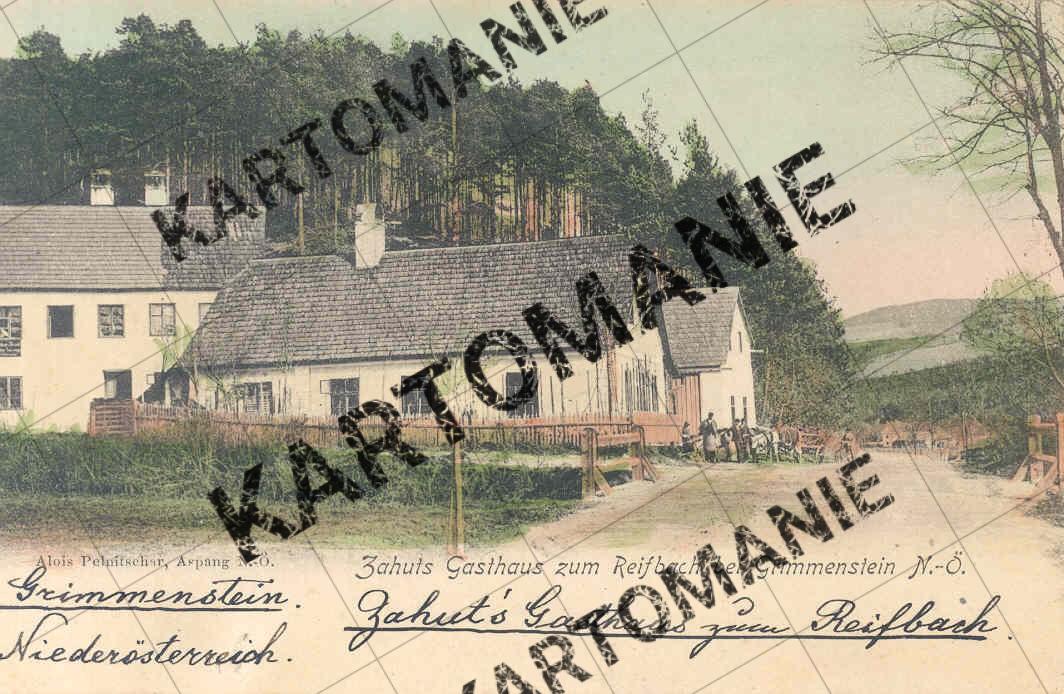 KARTOMANIE
KARTOMANIE
KARTOMANIE
Alois Pelnitschar, Aspang N.-Ö.
Zahuts Gasthaus zum Reifbach bei Grimmenstein N.-Ö.
Grimmenstein.
Zahut's Gasthaus zum Reifbach.
Niederösterreich.